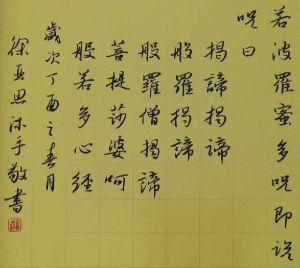 若波羅蜜多咒即説
咒曰
揭諦揭諦
般羅揭諦
般羅僧揭諦
菩提莎婆呵
般若多心經
歲次丁酉之春月
徐亞思沐手敬書